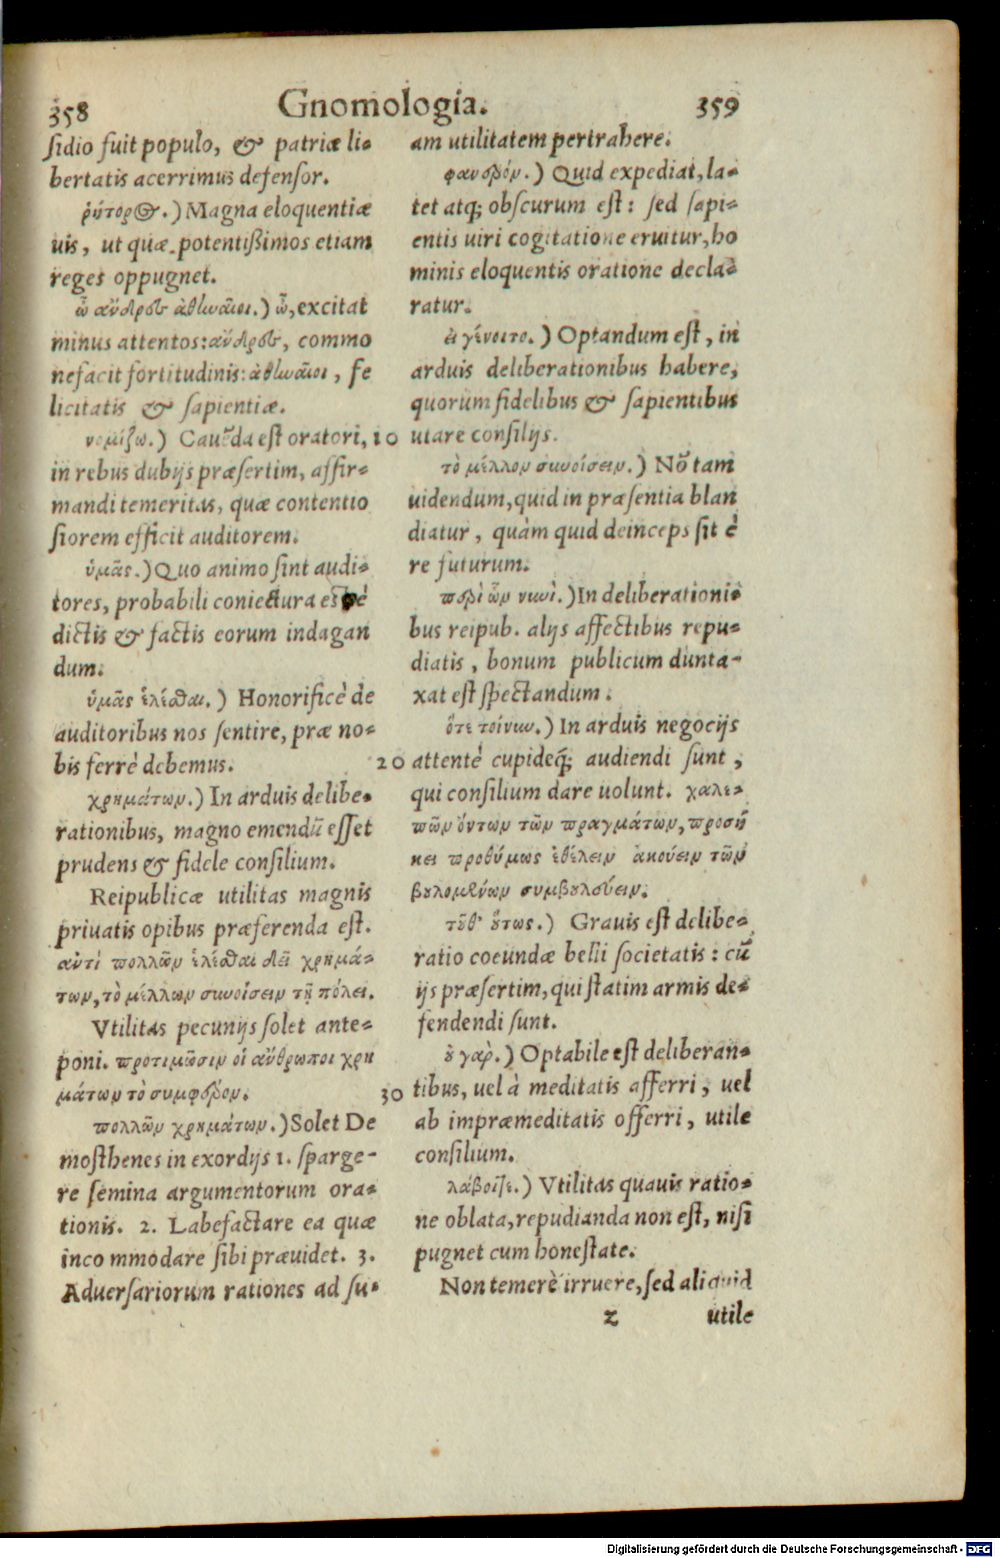 358 Gnomologia. 359
sidio fuit populo, & patriæ li-
bertatis acerrimus defensor.
ῥήτορος.) Magna eloquentiæ
uis, ut quæ potentißimos etiam
reges oppugnet.
ὦ ἄνδρες ἀθηναῖοι.) ὦ, excitat
minus attentos: ἄνδρες, commo
nefacit fortitudinis: ἀθηναῖοι, fe
licitatis & sapientiæ.
νομίζω.) Cauẽda est oratori, 10
in rebus dubijs præsertim, affir-
mandi temeritas, quæ contentio
siorem efficit auditorem.
ὑμᾶς.) Quo animo sint audi-
tores, probabili coniectura est è
dictis & factis eorum indagan
dum.
ὑμᾶς ἑλέσθαι.) Honorificè de
auditoribus nos sentire, præ no-
bis ferrè debemus. 20
χρημάτων.) In arduis delibe-
rationibus, magno emendũ esset
prudens & fidele consilium.
Reipublicæ utilitas magnis
priuatis opibus præferenda est.
ἀντὶ πολλῶν ἑλέσθαι δεῖ χρημά-
των, τὸ μέλλων συνοίσειν τῇ πόλει.
Vtilitas pecunijs solet ante-
poni. προτιμῶσιν οἱ ἄνθρωποι χρη
μάτων τὸ συμφέρον. 30
πολλῶν χρημάτων.) Solet De
mosthenes in exordijs 1. sparge-
re semina argumentorum ora-
tionis. 2. Labefactare ea quæ
inco mmodare sibi præuidet. 3.
Aduersariorum rationes ad su-
am utilitatem pertrahere.
φανερόν.) Quid expediat, la-
tet atq; obscurum est: sed sapi-
entis uiri cogitatione eruitur, ho
minis eloquentis oratione decla-
ratur.
εἰ γένοιτο.) Optandum est, in
arduis deliberationibus habere,
quorum fidelibus & sapientibus
utare consilijs.
τὸ μέλλον συνοίσειν.) Nõ tam
uidendum, quid in præsentia blan
diatur, quàm quid deinceps sit è
re futurum.
περὶ ὧν νυνὶ.) In deliberationi-
bus reipub. alijs affectibus repu-
diatis, bonum publicum dunta-
xat est spectandum.
ὅτε τοίνυν.) In arduis negocijs
attentè cupideq́; audiendi sunt,
qui consilium dare uolunt. χαλε-
πῶν ὄντων τῶν πραγμάτων, προσή
κει προθύμως ἐθέλειν ἀκούειν τῶν
βουλομένων συμβουλεύειν.
τοῦθ' οὕτως.) Grauis est delibe-
ratio coeundæ belli societatis: cũ
ijs præsertim, qui statim armis de-
fendendi sunt.
οὐ γὰρ.) Optabile est deliberan-
tibus, uel à meditatis afferri, uel
ab impræmeditatis offerri, utile
consilium.
λάβοιτε.) Vtilitas quauis ratio-
ne oblata, repudianda non est, nisi
pugnet cum honestate.
Non temerè irruere, sed aliquid
z utile
Digitalisierung gefördert durch die Deutsche Forschungsgemeinschaft - DFG